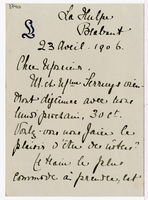 La Hulpe
Brabant
23 Avril. 1906.
Cher Monsieur.
M. et Mme Serruys vien-
dront déjeuner avec nous
lundi prochain, 30 ct.
Voulez-vous nous faire le
plaisir d'être des nôtres?
Le train le plus
commode à prendre, est